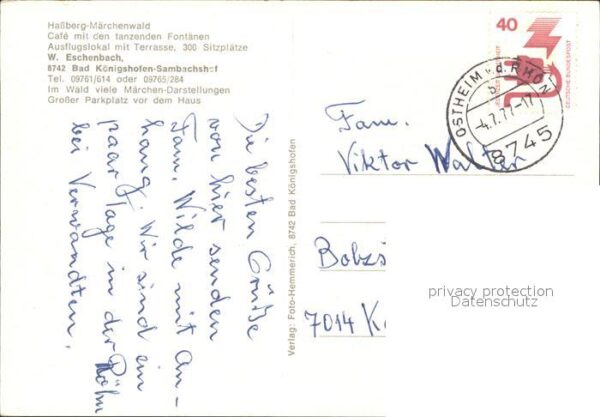 Haßberg-Märchenwald
Café mit den tanzenden Fontänen
Ausflugslokal mit Terrasse, 300 Sitzplätze
W. Eschenbach,
8742 Bad Königshofen-Sambachshof
Tel. 09761/614 oder 09765/284
Im Wald viele Märchen-Darstellungen
Großer Parkplatz vor dem Haus
Die besten Grüße
von hier senden
Fam. Wilde mit An-
hang. Wir sind ein
paar Tage in der Röhn
bei Verwandten.
Verlag: Foto-Hemmerich, 8742 Bad Königshofen
40
JEDERZEIT SICHERHEIT
DEUTSCHE BUNDESPOST
OSTHEIM v.d. RHÖN
b
-4.7.77-17
8745
Fam.
Viktor Walter
Bobzs
7014 K
privacy protection
Datenschutz